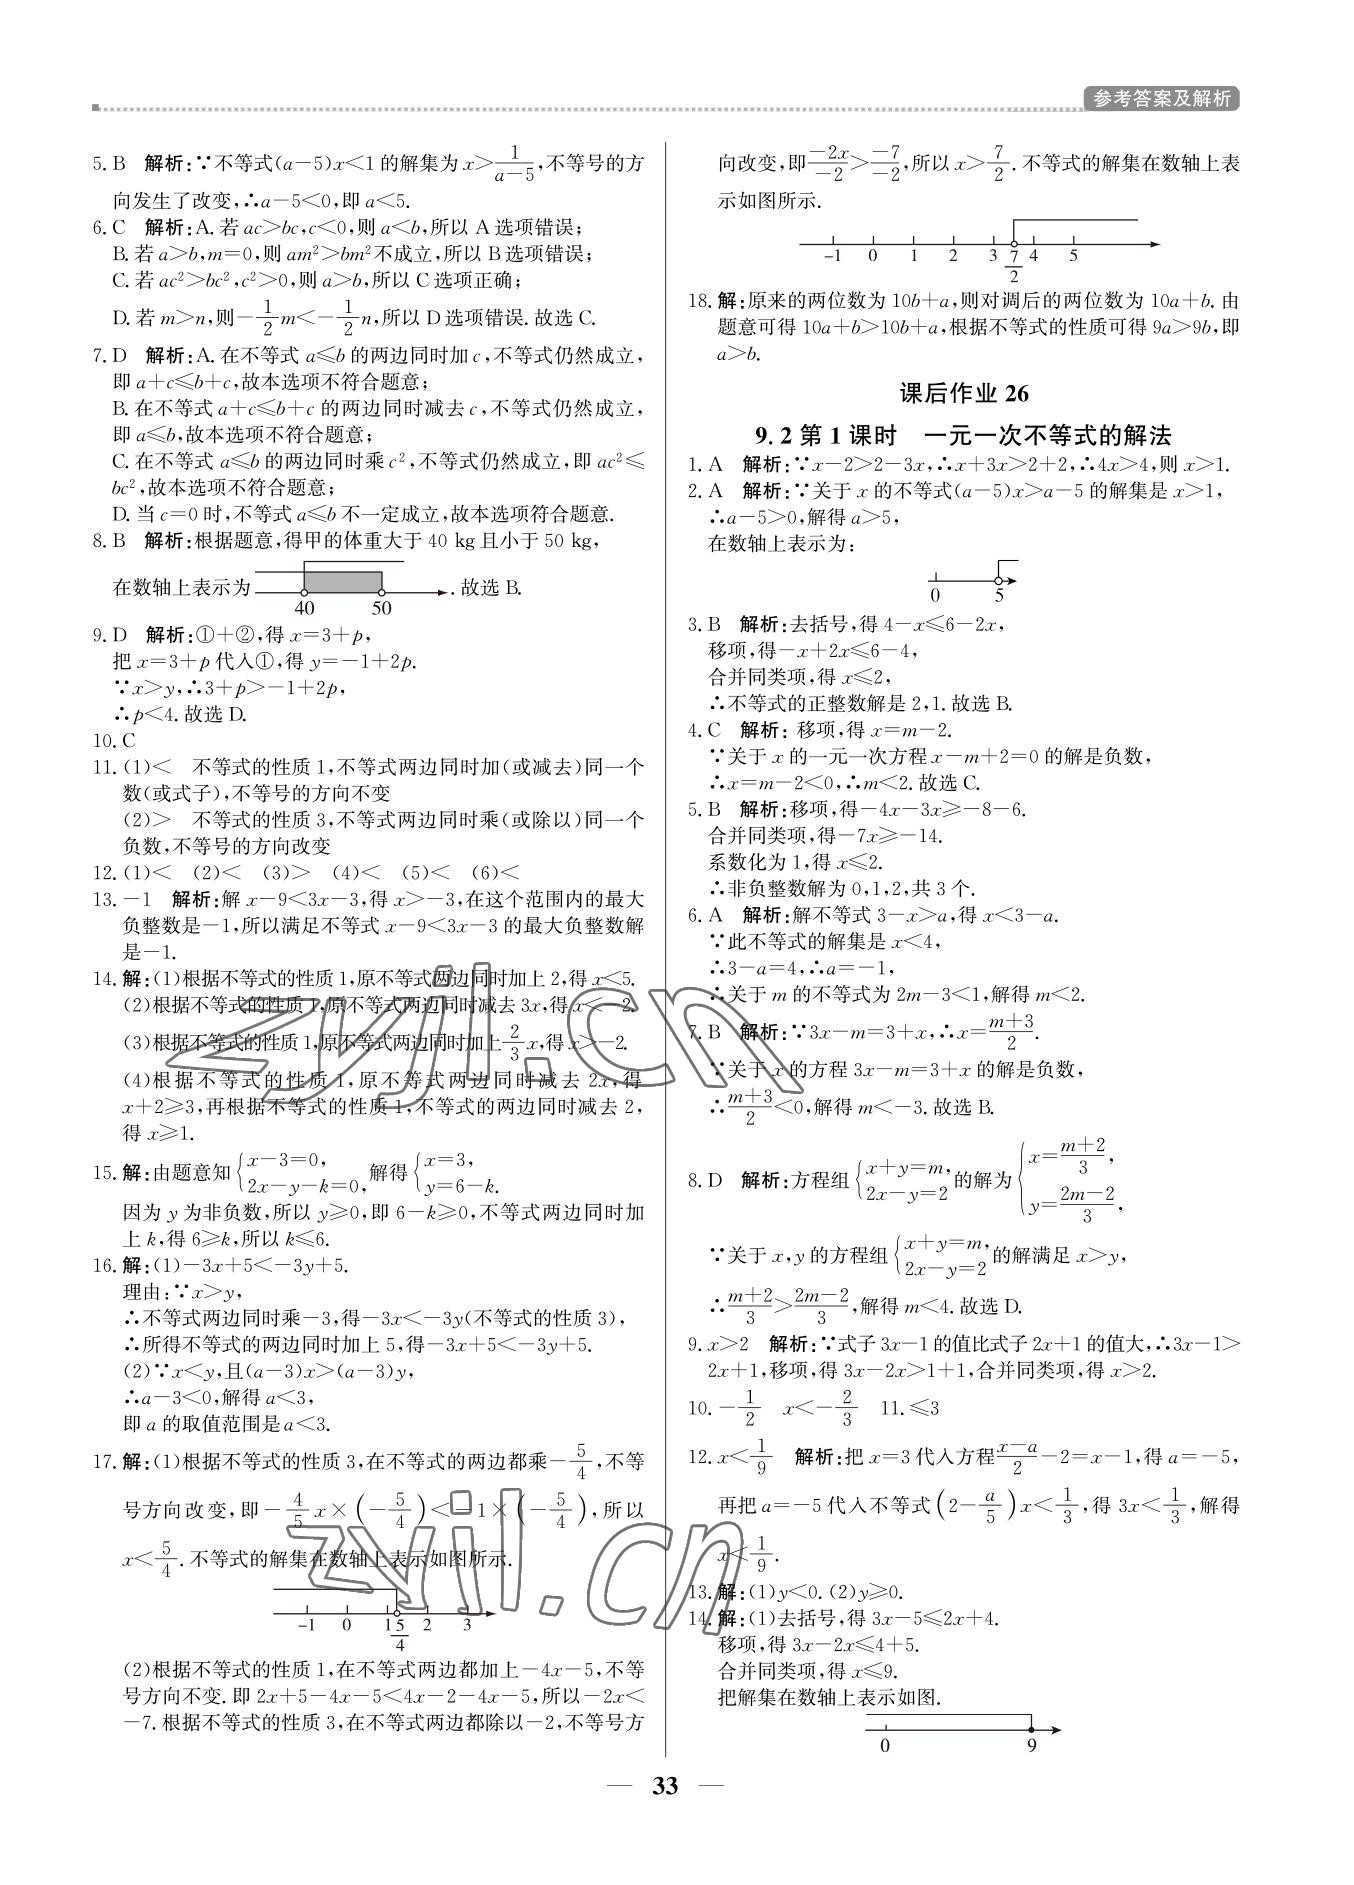 参考答案及解析
5. B　解析:∵不等式(a－5)x＜1的解集为x＞1/(a－5),不等号的方
向发生了改变,∴a－5＜0,即a＜5.
6. C　解析:A. 若ac＞bc,c＜0,则a＜b,所以A选项错误;
B. 若a＞b,m＝0,则am²＞bm²不成立,所以B选项错误;
C. 若ac²＞bc²,c²＞0,则a＞b,所以C选项正确;
D. 若m＞n,则－1/2m＜－1/2n,所以D选项错误. 故选C.
7. D　解析:A. 在不等式a≤b的两边同时加c,不等式仍然成立,
即a＋c≤b＋c,故本选项不符合题意;
B. 在不等式a＋c≤b＋c的两边同时减去c,不等式仍然成立,
即a≤b,故本选项不符合题意;
C. 在不等式a≤b的两边同时乘c²,不等式仍然成立,即ac²≤
bc²,故本选项不符合题意;
D. 当c＝0时,不等式a≤b不一定成立,故本选项符合题意.
8. B　解析:根据题意,得甲的体重大于40 kg且小于50 kg,
在数轴上表示为　. 故选B.
40　50
9. D　解析:①＋②,得x＝3＋p,
把x＝3＋p代入①,得y＝－1＋2p.
∵x＞y,∴3＋p＞－1＋2p,
∴p＜4. 故选D.
10. C
11. (1)＜　不等式的性质1,不等式两边同时加(或减去)同一个
数(或式子),不等号的方向不变
(2)＞　不等式的性质3,不等式两边同时乘(或除以)同一个
负数,不等号的方向改变
12. (1)＜　(2)＜　(3)＞　(4)＜　(5)＜　(6)＜
13. －1　解析:解x－9＜3x－3,得x＞－3,在这个范围内的最大
负整数是－1,所以满足不等式x－9＜3x－3的最大负整数解
是－1.
14. 解:(1)根据不等式的性质1,原不等式两边同时加上2,得x＜5.
(2)根据不等式的性质1,原不等式两边同时减去3x,得x＜－2.
(3)根据不等式的性质1,原不等式两边同时加上2/3x,得x＞－2.
(4)根据不等式的性质1,原不等式两边同时减去2x,得
x＋2≥3,再根据不等式的性质1,不等式的两边同时减去2,
得x≥1.
15. 解:由题意知{x－3＝0, 2x－y－k＝0,解得{x＝3, y＝6－k.
因为y为非负数,所以y≥0,即6－k≥0,不等式两边同时加
上k,得6≥k,所以k≤6.
16. 解:(1)－3x＋5＜－3y＋5.
理由:∵x＞y,
∴不等式两边同时乘－3,得－3x＜－3y(不等式的性质3),
∴所得不等式的两边同时加上5,得－3x＋5＜－3y＋5.
(2)∵x＜y,且(a－3)x＞(a－3)y,
∴a－3＜0,解得a＜3,
即a的取值范围是a＜3.
17. 解:(1)根据不等式的性质3,在不等式的两边都乘－5/4,不等
号方向改变,即－4/5x×(－5/4)＜－1×(－5/4),所以
x＜5/4. 不等式的解集在数轴上表示如图所示.
－1　0　1　5/4　2　3
(2)根据不等式的性质1,在不等式两边都加上－4x－5,不等
号方向不变. 即2x＋5－4x－5＜4x－2－4x－5,所以－2x＜
－7. 根据不等式的性质3,在不等式两边都除以－2,不等号方
向改变,即－2x/－2＞－7/－2,所以x＞7/2. 不等式的解集在数轴上表
示如图所示.
－1　0　1　2　3　7/2　4　5
18. 解:原来的两位数为10b＋a,则对调后的两位数为10a＋b. 由
题意可得10a＋b＞10b＋a,根据不等式的性质可得9a＞9b,即
a＞b.
课后作业26
9. 2 第1课时　一元一次不等式的解法
1. A　解析:∵x－2＞2－3x,∴x＋3x＞2＋2,∴4x＞4,则x＞1.
2. A　解析:∵关于x的不等式(a－5)x＞a－5的解集是x＞1,
∴a－5＞0,解得a＞5,
在数轴上表示为:
0　5
3. B　解析:去括号,得4－x≤6－2x,
移项,得－x＋2x≤6－4,
合并同类项,得x≤2,
∴不等式的正整数解是2,1. 故选B.
4. C　解析: 移项,得x＝m－2.
∵关于x的一元一次方程x－m＋2＝0的解是负数,
∴x＝m－2＜0,∴m＜2. 故选C.
5. B　解析:移项,得－4x－3x≥－8－6.
合并同类项,得－7x≥－14.
系数化为1,得x≤2.
∴非负整数解为0,1,2,共3个.
6. A　解析:解不等式3－x＞a,得x＜3－a.
∵此不等式的解集是x＜4,
∴3－a＝4,∴a＝－1,
∴关于m的不等式为2m－3＜1,解得m＜2.
7. B　解析:∵3x－m＝3＋x,∴x＝(m＋3)/2.
∵关于x的方程3x－m＝3＋x的解是负数,
∴(m＋3)/2＜0,解得m＜－3. 故选B.
8. D　解析:方程组{x＋y＝m, 2x－y＝2的解为{x＝(m＋2)/3, y＝(2m－2)/3,
∵关于x,y的方程组{x＋y＝m, 2x－y＝2的解满足x＞y,
∴(m＋2)/3＞(2m－2)/3,解得m＜4. 故选D.
9. x＞2　解析:∵式子3x－1的值比式子2x＋1的值大,∴3x－1＞
2x＋1,移项,得3x－2x＞1＋1,合并同类项,得x＞2.
10. －1/2　x＜－2/3　11. ≤3
12. x＜1/9　解析:把x＝3代入方程(x－a)/2－2＝x－1,得a＝－5,
再把a＝－5代入不等式(2－a/5)x＜1/3,得3x＜1/3,解得
x＜1/9.
13. 解:(1)y＜0. (2)y≥0.
14. 解:(1)去括号,得3x－5≤2x＋4.
移项,得3x－2x≤4＋5.
合并同类项,得x≤9.
把解集在数轴上表示如图.
0　9
33
zyjl.cn
zyjl.cn